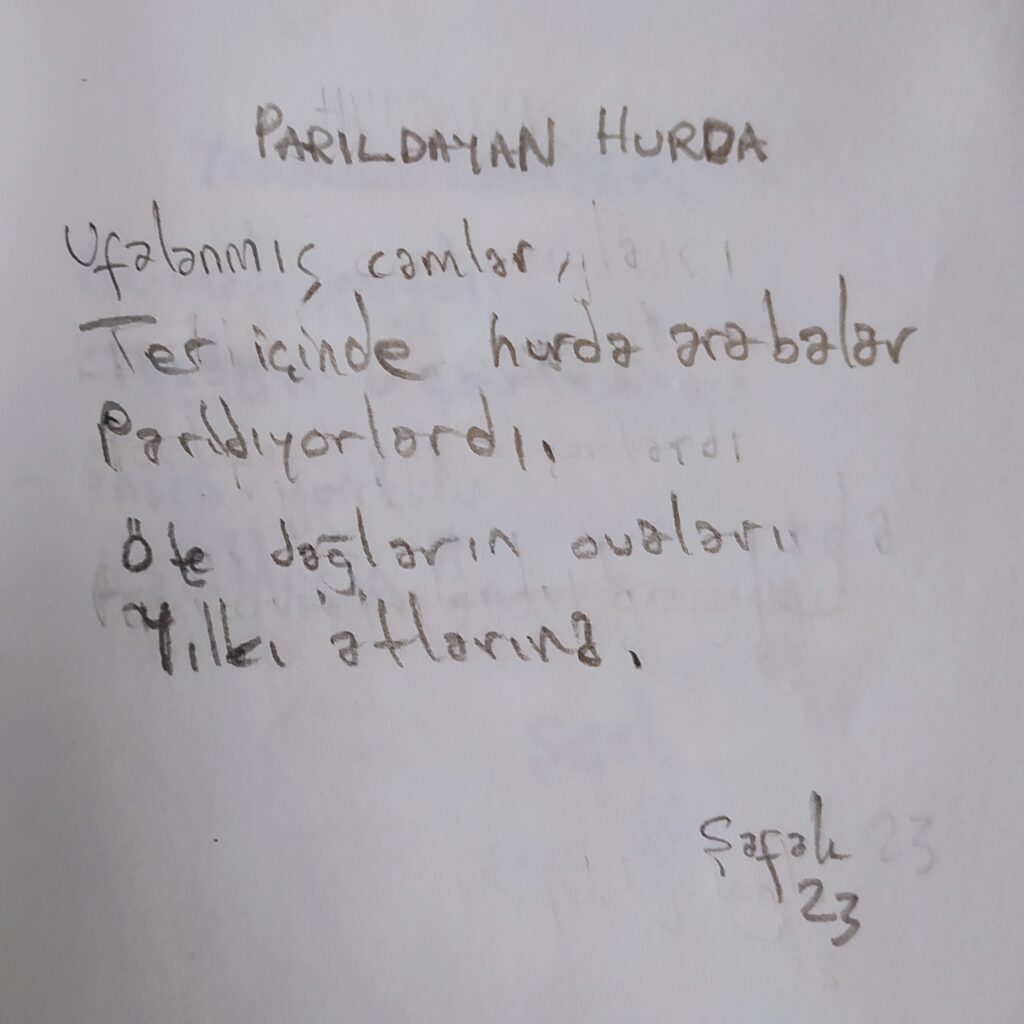 PARILDAYAN HURDA
Ufalanmış camlar,
Ter içinde hurda arabalar
Parıldıyorlardı,
Öte dağların ovaları
Yılkı atlarına.
Şafak
23